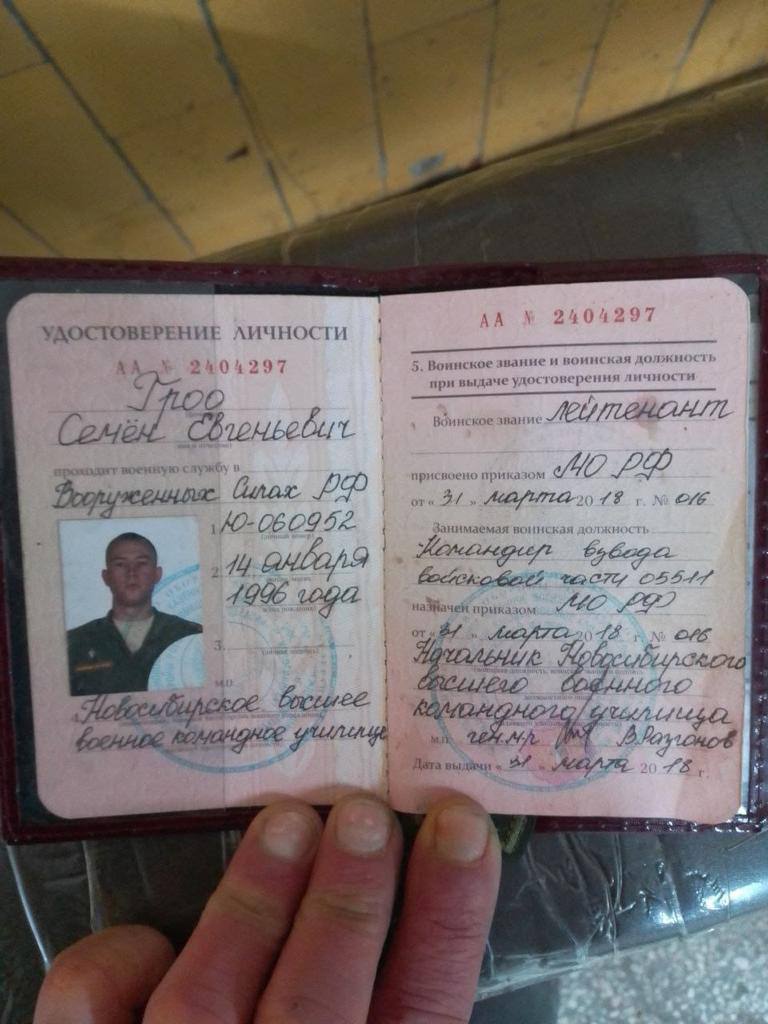 УДОСТОВЕРЕНИЕ ЛИЧНОСТИ
АА № 2404297
Гроо
Семён Евгеньевич
проходит военную службу в
Вооруженных Силах РФ
1. Ю-060952
(личный номер)
2. 14 января
1996 года
3.
М.П.
Новосибирское высшее
военное командное училище
АА № 2404297
5. Воинское звание и воинская должность
при выдаче удостоверения личности
Воинское звание лейтенант
присвоено приказом МО РФ
от « 31 » марта 20 18 г. № 016
Занимаемая воинская должность
Командир взвода
войсковой части 05511
назначен приказом МО РФ
от « 31 » марта 20 18 г. № 016
Начальник Новосибирского
высшего военного
командного училища
М.П. ген.м-р В. Разгонов
Дата выдачи « 31 » марта 20 18 г.